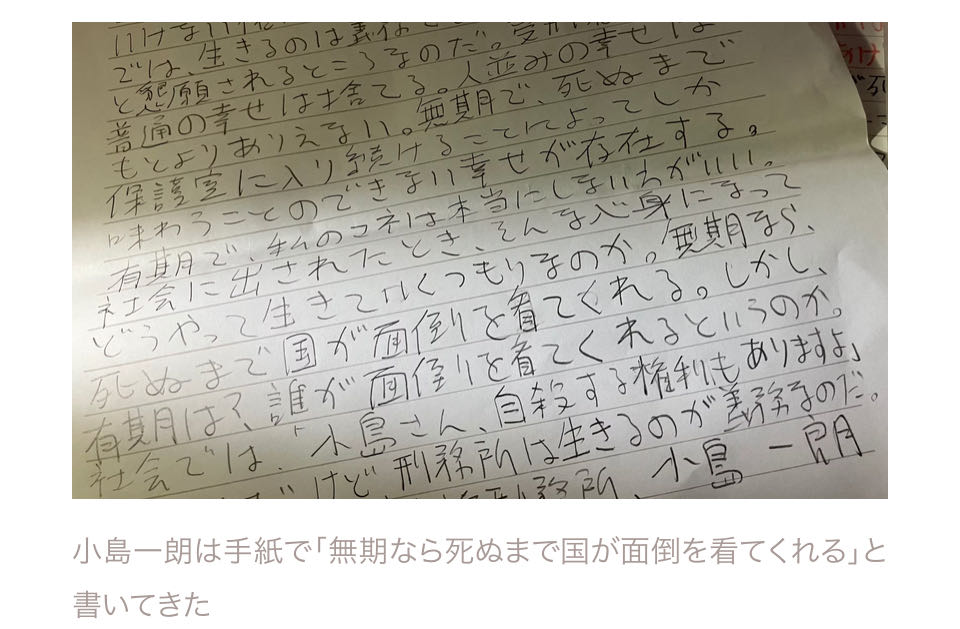 では、生きるのは義務
と懇願されるところなのだ。
普通の幸せは捨てる。人並みの幸せは
もとよりありえない。無期で、死ぬまで
保護室に入り続けることによってしか
味わうことのできない幸せが存在する。
有期で、私のコネは本当にしないほうがいい。
社会に出されたとき、そんな心身になって
どうやって生きていくつもりなのか。無期なら、
死ぬまで国が面倒を看てくれる。しかし、
有期は?誰が面倒を看てくれるというのか。
社会では、小島さん、自殺する権利もありますよ」
だけど刑務所は生きるのが義務なのだ。
刑務所、小島一朗
小島一朗は手紙で「無期なら死ぬまで国が面倒を看てくれる」と
書いてきた